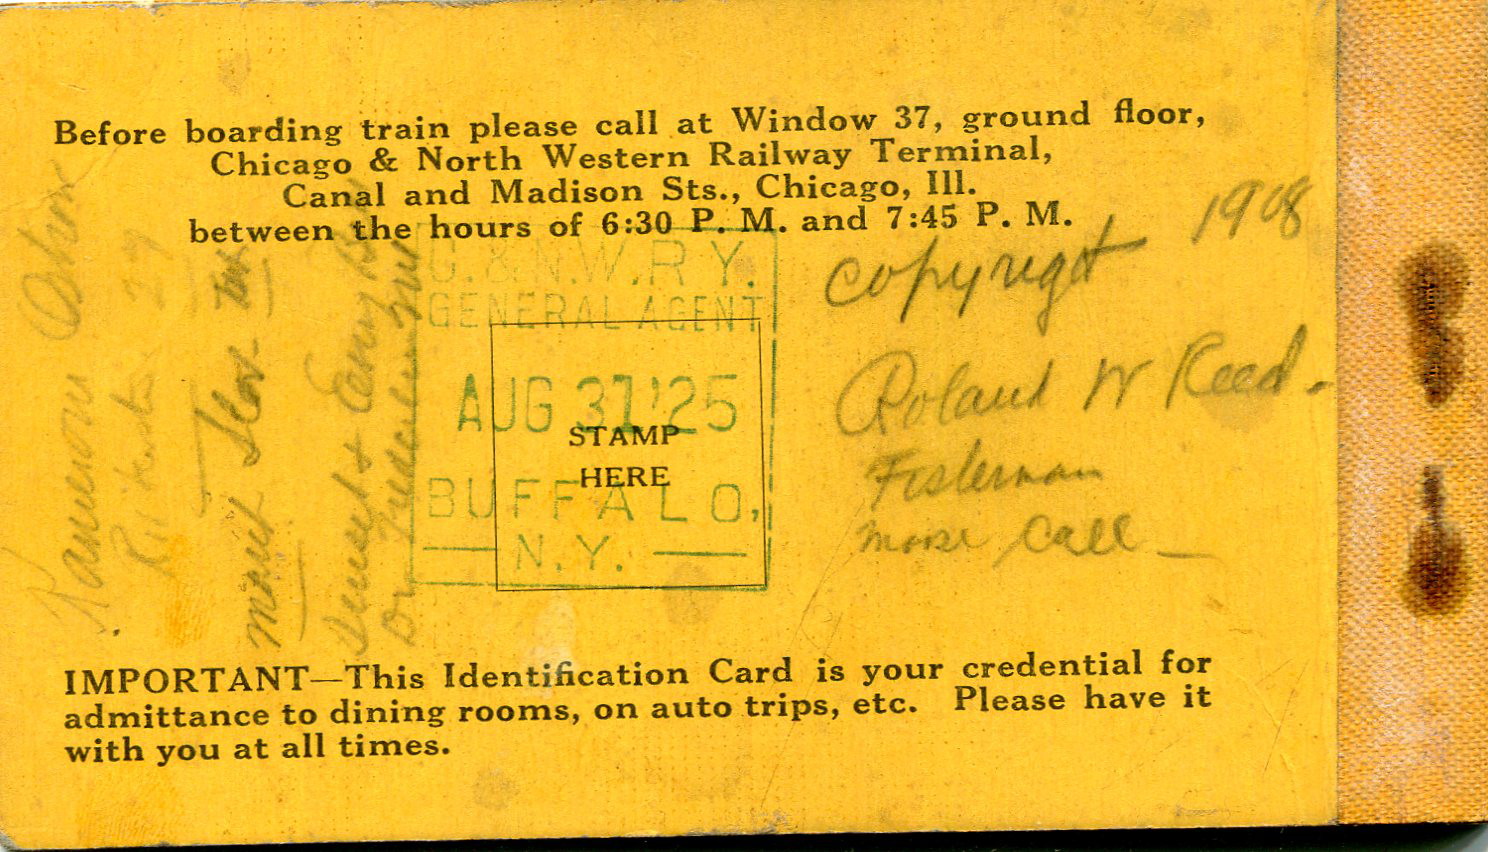 Before boarding train please call at Window 37, ground floor,
Chicago & North Western Railway Terminal,
Canal and Madison Sts., Chicago, Ill.
between the hours of 6:30 P. M. and 7:45 P. M.
C. & N.W. RY.
GENERAL AGENT
AUG 31 '25
BUFFALO,
N.Y.
STAMP
HERE
1908
copyright
Roland W Reed.
Fisherman
moose call
IMPORTANT—This Identification Card is your credential for
admittance to dining rooms, on auto trips, etc. Please have it
with you at all times.